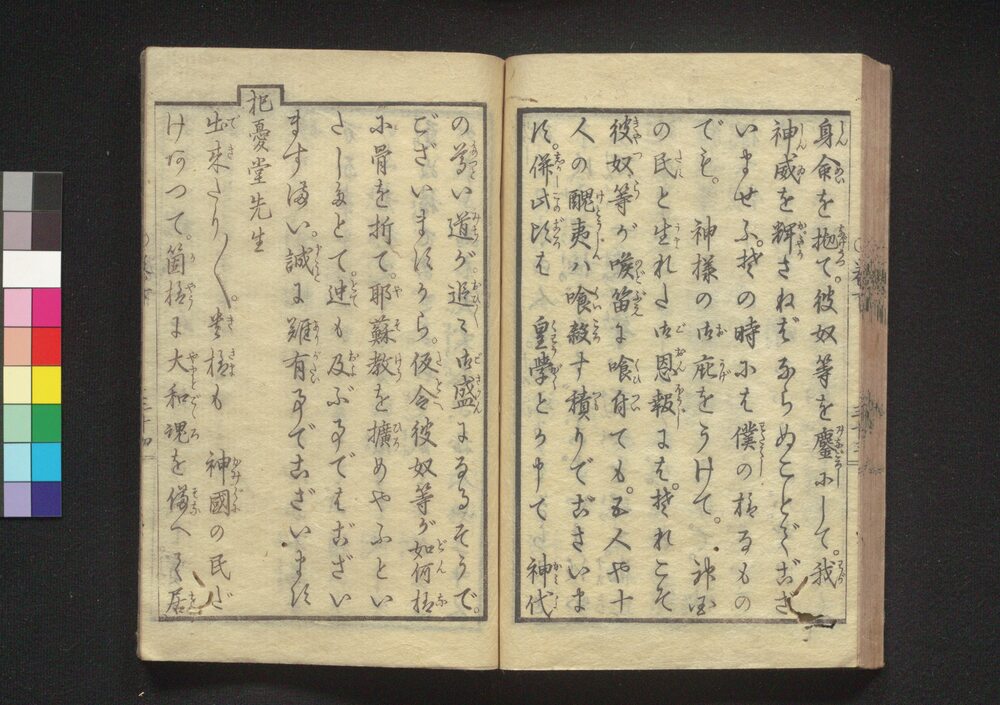 身命を抛て。彼奴等を鏖にして。我
神威を輝さねばならぬことでござ
いませふ。其の時にも僕の様なもの
でも。神様の御庇をうけて。神国
の民と生れた御恩報にも。其れこそ
彼奴等が喉笛に喰付ても。五人や十
人の醜夷ハ喰殺す積りでございま
す。併此頃は皇学とか申て神代
の尊い道が。追々御盛になるそうで。
ございますから。仮令彼奴等が如何様
に骨を折て。耶蘇教を擴めやふとい
たしたとて。迚も及ぶ事ではござい
ますまい。誠に難有事でございます
杞憂堂先生
出来たり〱。貴様も神國の民だ
けあつて。箇様に大和魂を備へて居